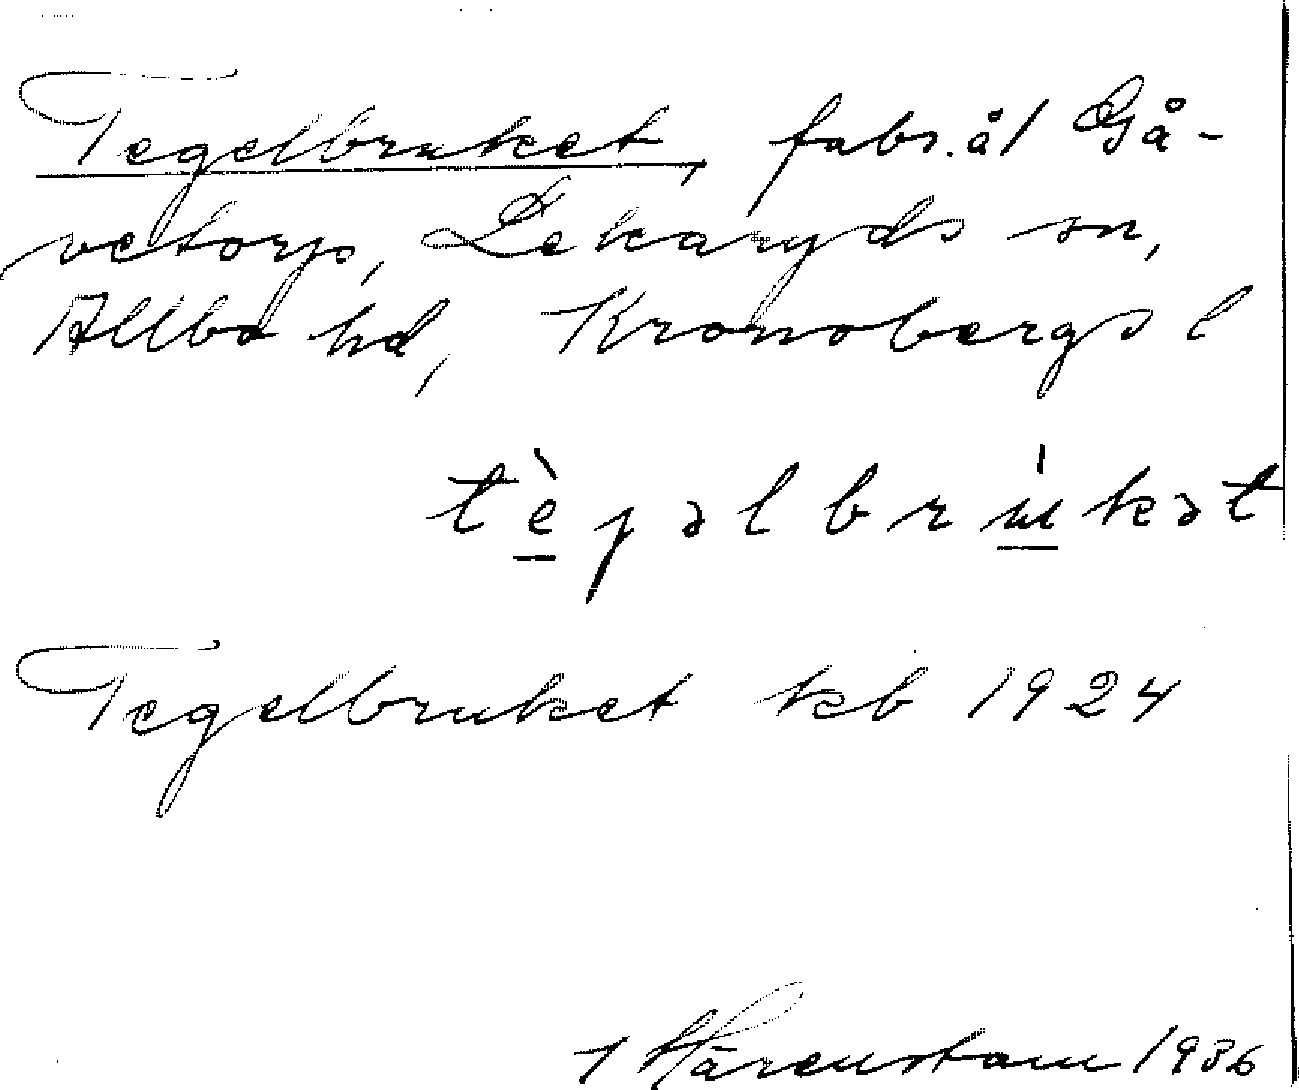 Tegelbruket, fabr. å/ Gå-
vetorp, Lekaryds sn,
Allbo hd, Kronobergs l
tè̱gəlbrú̱kət
Tegelbruket kb 1924
Härenstam 1936